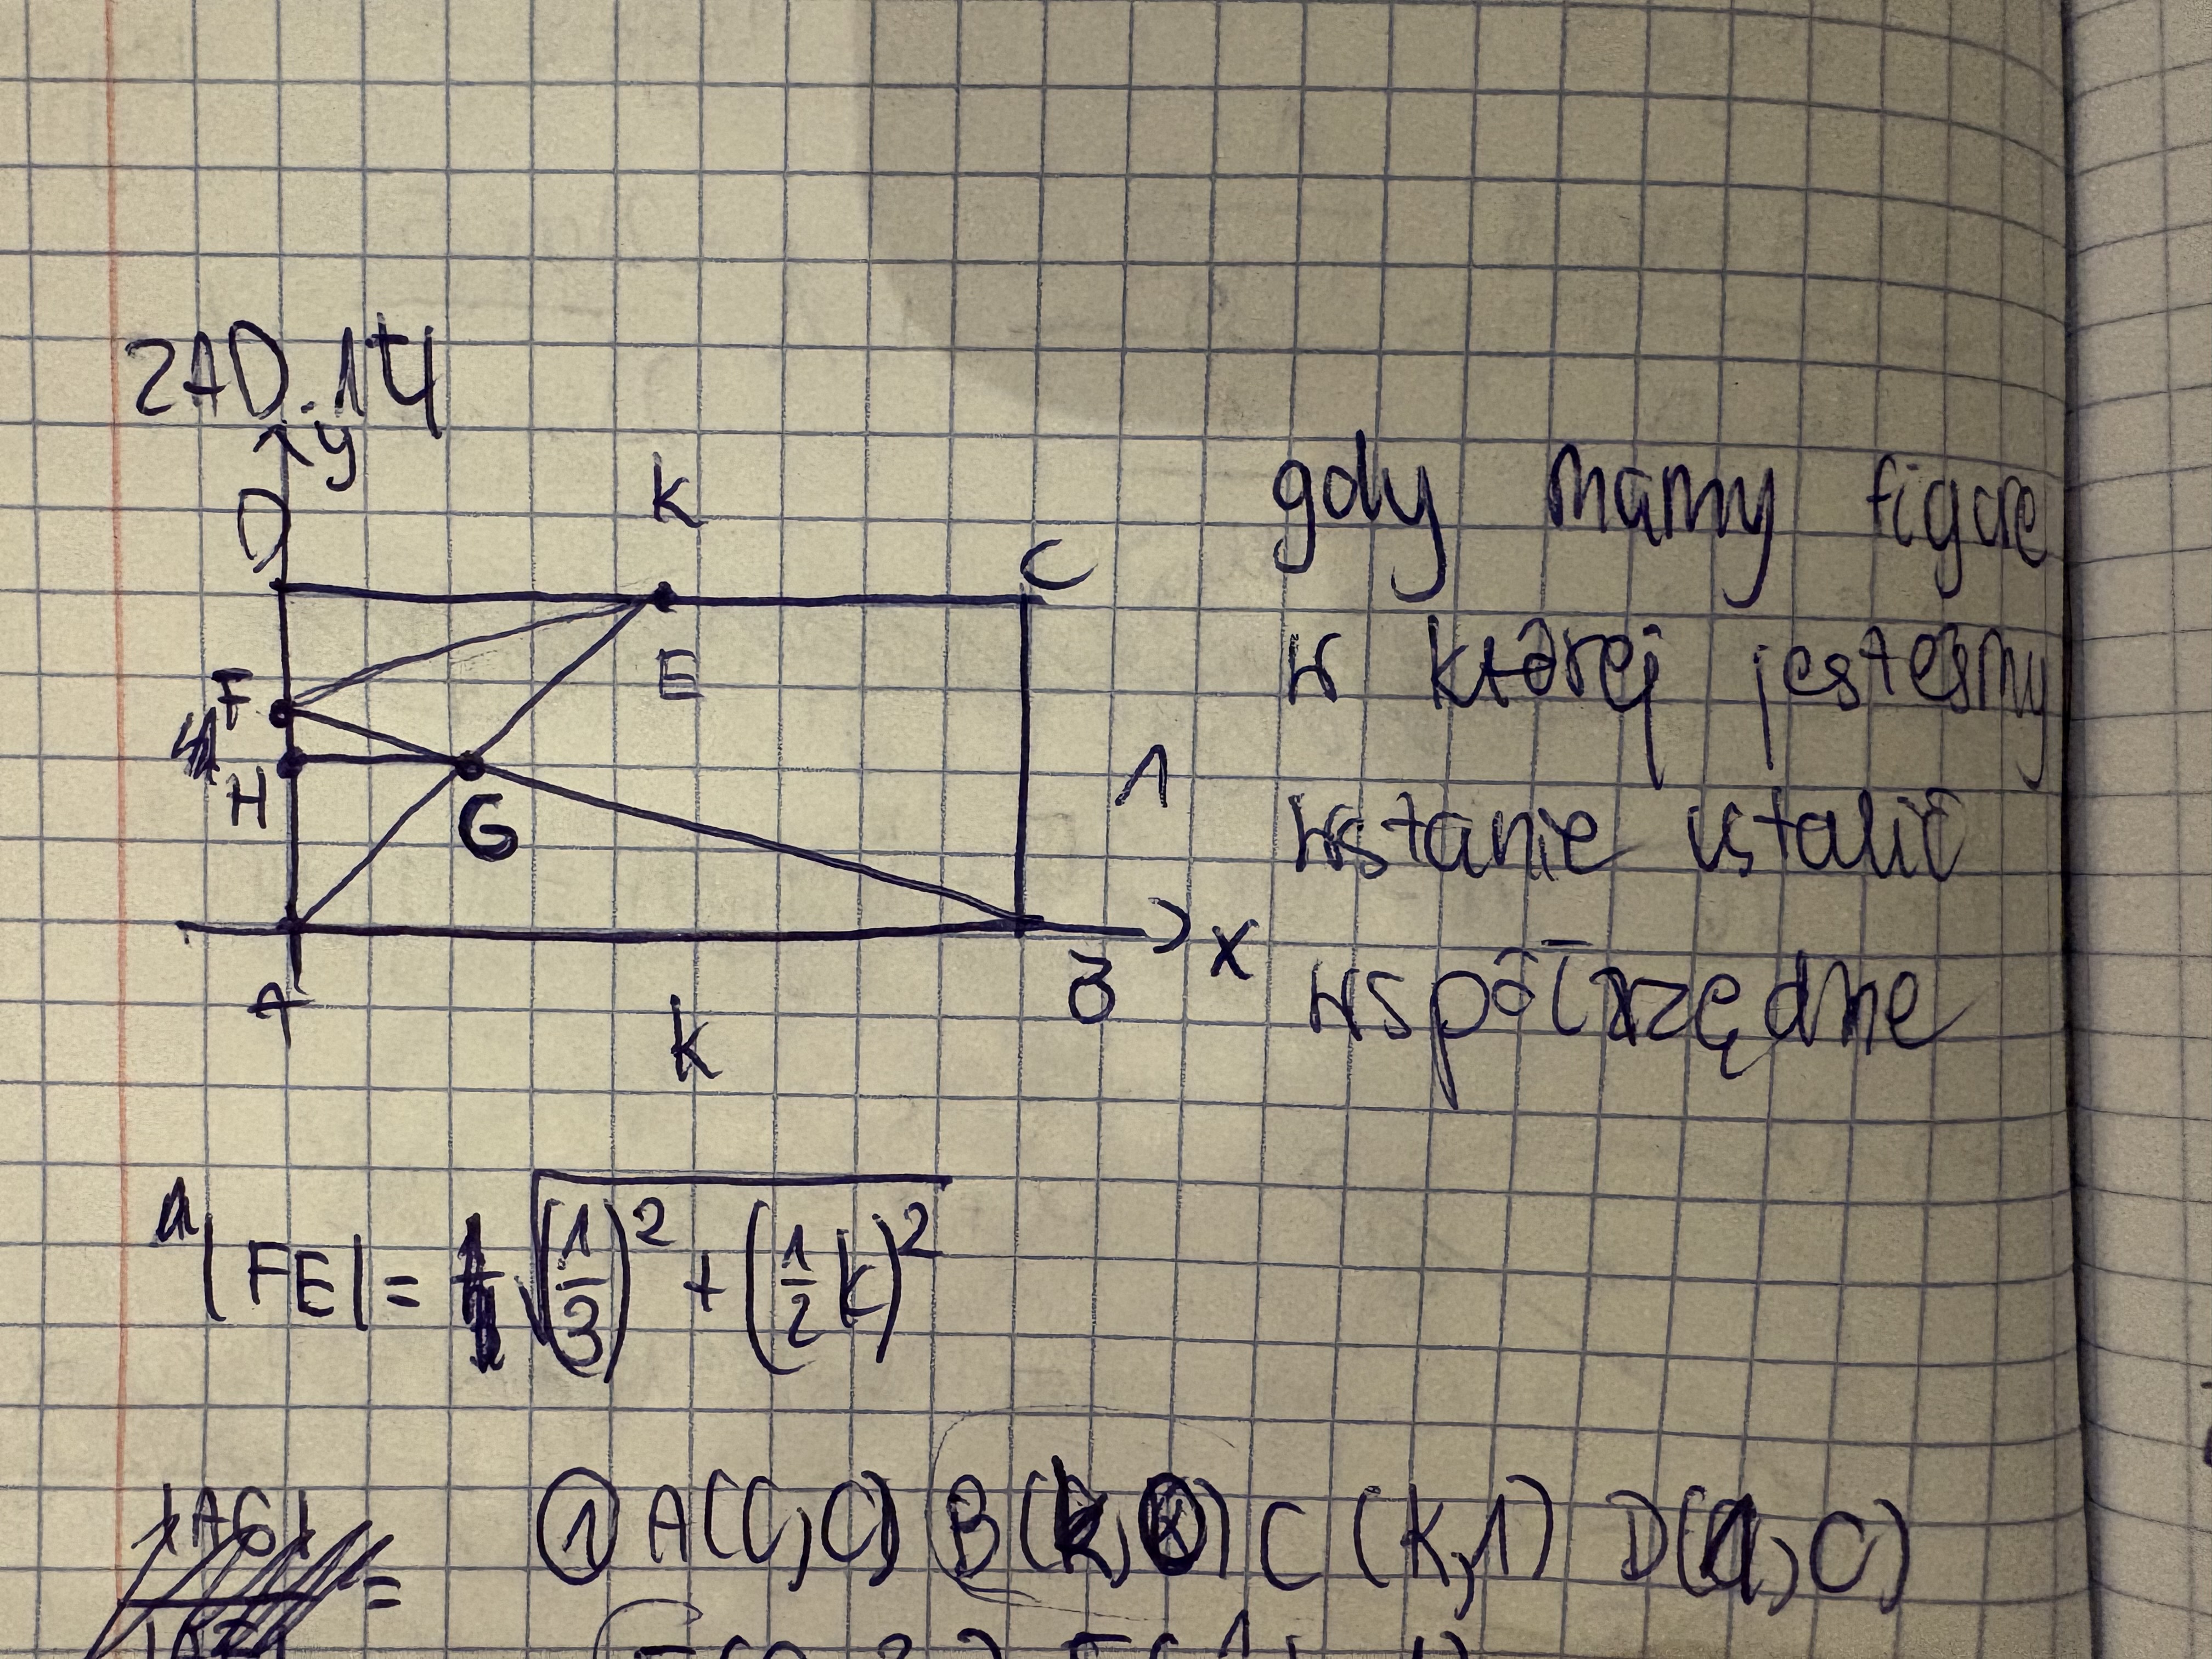 ZAD.14
y
D
k
C
E
F
H
G
1
A
B
x
k
gdy mamy figurę
w której jesteśmy
wstanie ustalić
współrzędne
|FE| = √(1/3)² + (1/2 k)²
|AG| =
① A(0,0) B(k,0) C(k,1) D(1,0)